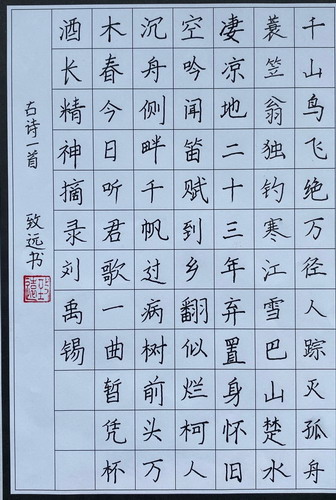 千山鸟飞绝万径人踪灭孤舟
蓑笠翁独钓寒江雪巴山楚水
凄凉地二十三年弃置身怀旧
空吟闻笛赋到乡翻似烂柯人
沉舟侧畔千帆过病树前头万
木春今日听君歌一曲暂凭杯
酒长精神摘录刘禹锡
古诗一首 致远书